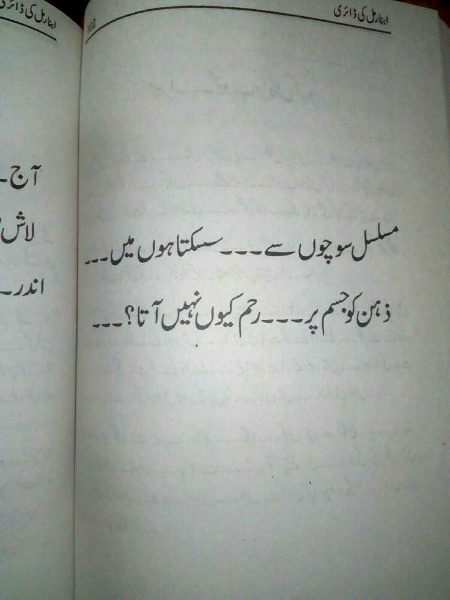 ابنارمل کی ڈائری
مسلسل سوچوں سے ۔۔۔ سسکتا ہوں میں ۔۔۔
ذہن کو جسم پر ۔۔۔ رحم کیوں نہیں آتا؟ ۔۔۔
کی ڈائری
آج ۔
لاش
اندر ۔